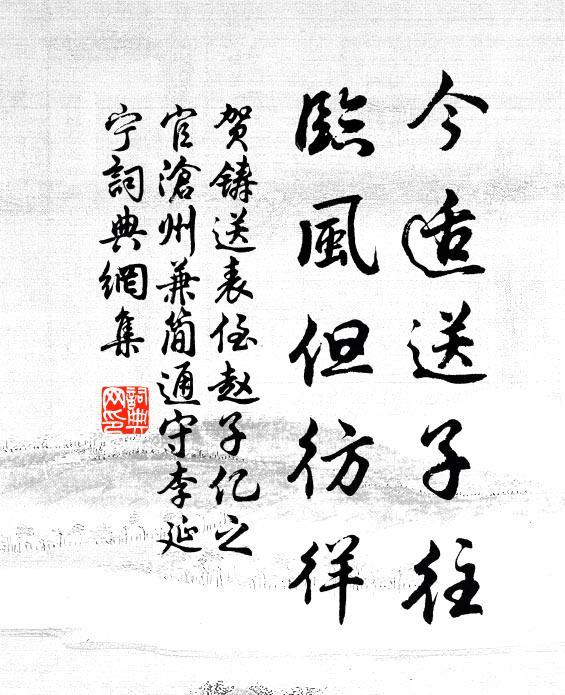 今适送子往
臨風但彷徉
贺鑄送表侄赵子亿之
官滄州兼简通守李延
宁詞典網集
詞典
网印